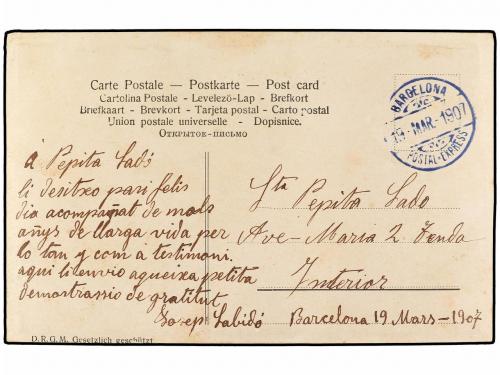 Carte Postale — Postkarte — Post card
Cartolina Postale - Levelező-Lap - Brefkort
Briefkaart - Brevkort - Tarjeta postal - Carto postal
Union postale universelle - Dopisnice.
Открытое-письмо
BARCELONA
19 - MAR - 1907
POSTAL-EXPRESS
á Pepita Ladó
li desitxo pasi felis
dia acompañat de mols
añys de llarga vida per
lo tan y com á testimoni
aqui li envio aqueixa petita
demostrassio de gratitut
Josep Sabidó
Sta Pepita Lado
Ave-Maria 2 Tenda
Interior
Barcelona 19 Mars - 1907
D.R.G.M. Gesetzlich geschützt